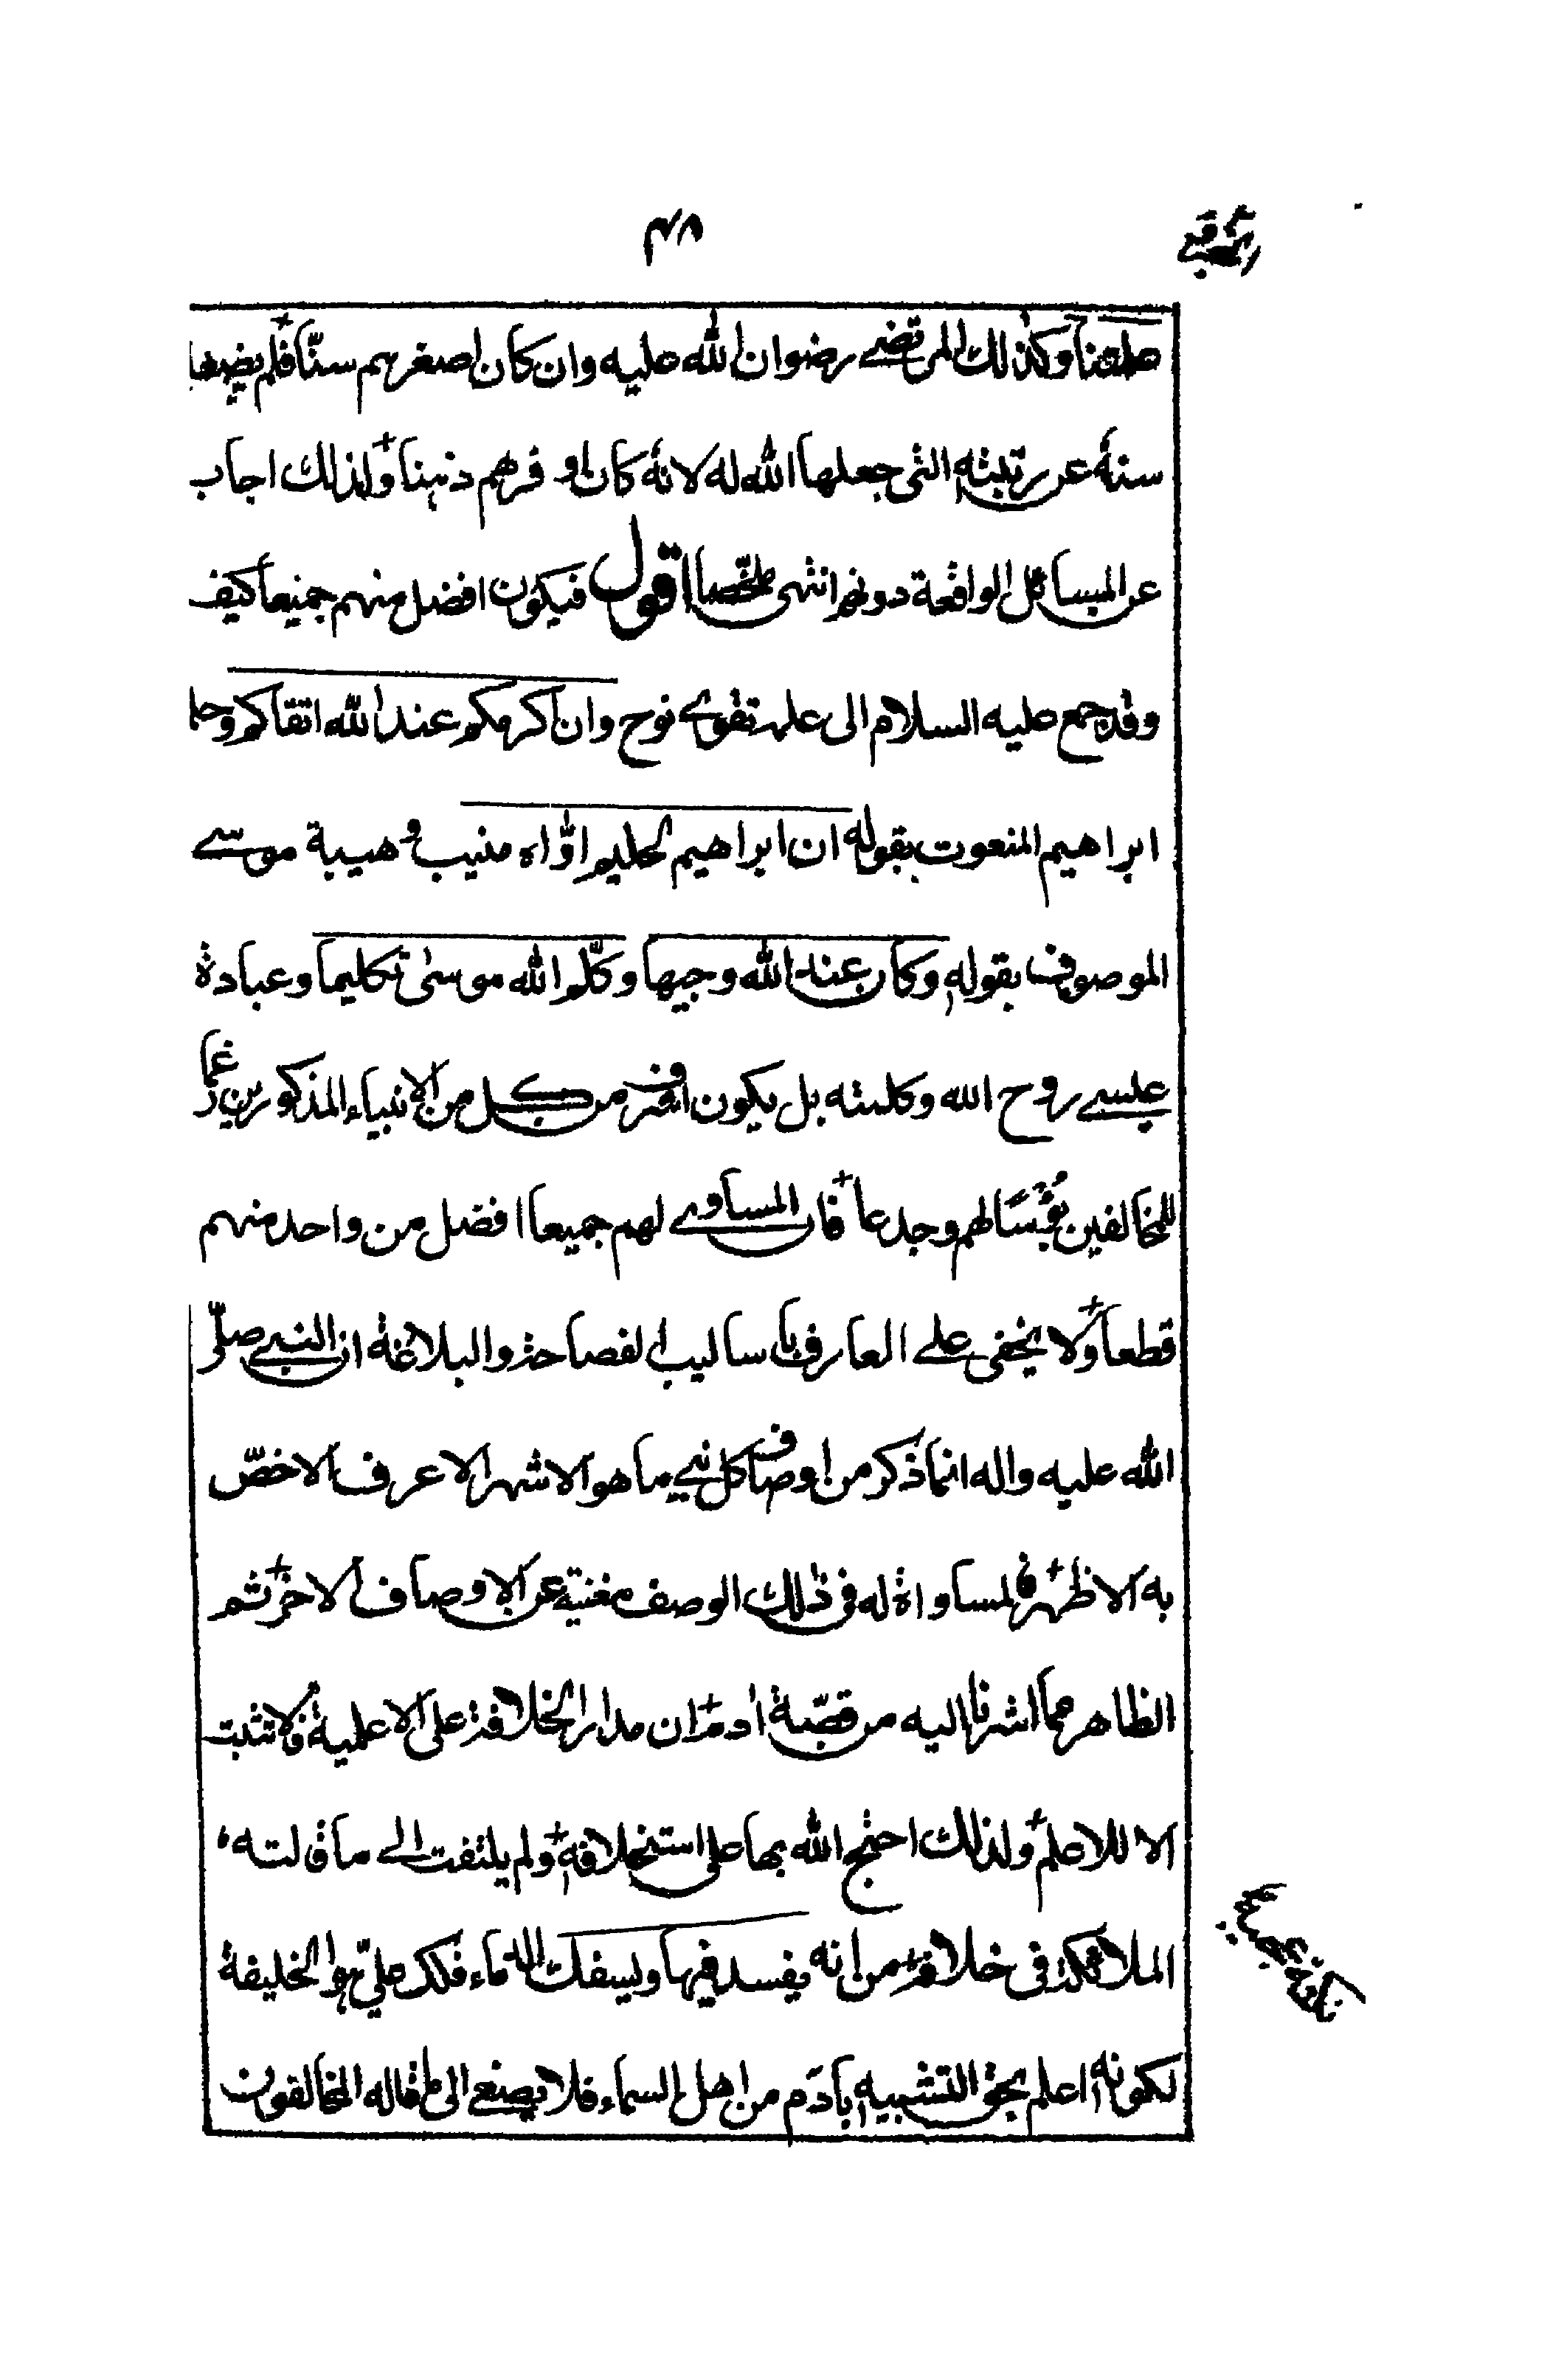 ٣٨
وكذلك المرتضے رضوان الله عليه وان كان اصغرهم سنّا فلم يضعها
سنهٔ عن رتبته التى جعلها الله له لانهٔ كان اوفرهم ذهنا ولذلك اجاب
عن المسائل الواقعة دونهم انتهى ملخّصا اقول فيكون افضل منهم جميعا كيف
وقد جمع عليه السلام الى علمه تقوى نوح وان اكرمكم عند الله اتقاكم وحلم
ابراهيم المنعوت بقوله ان ابراهيم لحليم اوّاه منيب وهيبة موسے
الموصوف بقوله وكان عند الله وجيها وكلّم الله موسىٰ تكليما وعبادة
عيسے روح الله وكلمته بل يكون اشرف من كل من الانبياء المذكورين رغما
للمخالفين تعسًا لهم وجدعا فان المساوے لهم جميعا افضل من واحد منهم
قطعا ولا يخفى علے العارف باساليب الفصاحة والبلاغة ان النبے صلّى
الله عليه واله انما ذكر من اوصاف كل نبے ما هو الاشهر الاعرف الاخصّ
به الاظهر فالمساواة له فى ذلك الوصف مغنية عن الاوصاف الاخر ثم
الظاهر مما اشرنا اليه من قصّة ادم ان مدار الخلافة على الاعلمية فلا تثبت
الا للاعلم ولذلك احتج الله بها على استخلافه ولم يلتفت الے ما قالته
الملائكة فى خلافته من انه يفسد فيها ويسفك الدماء فكذ علیّ هو الخليفة
لكونه اعلم بحق التشبيه بآدم من اهل السماء فلا يصغے الى ما قاله المخالفون